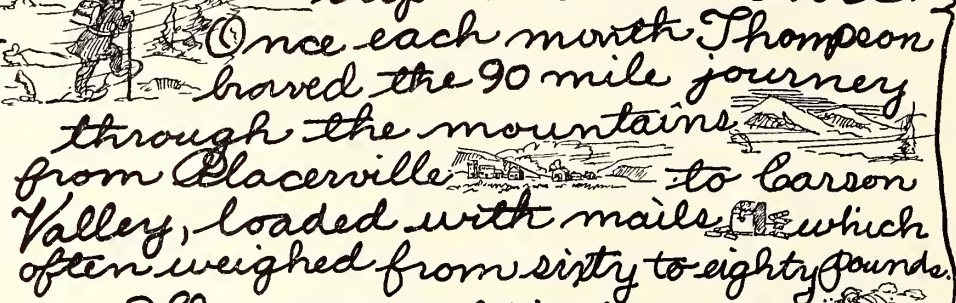 Once each month Thompson
braved the 90 mile journey
through the mountains
from Placerville to Carson
Valley, loaded with mails which
often weighed from sixty to eighty pounds.